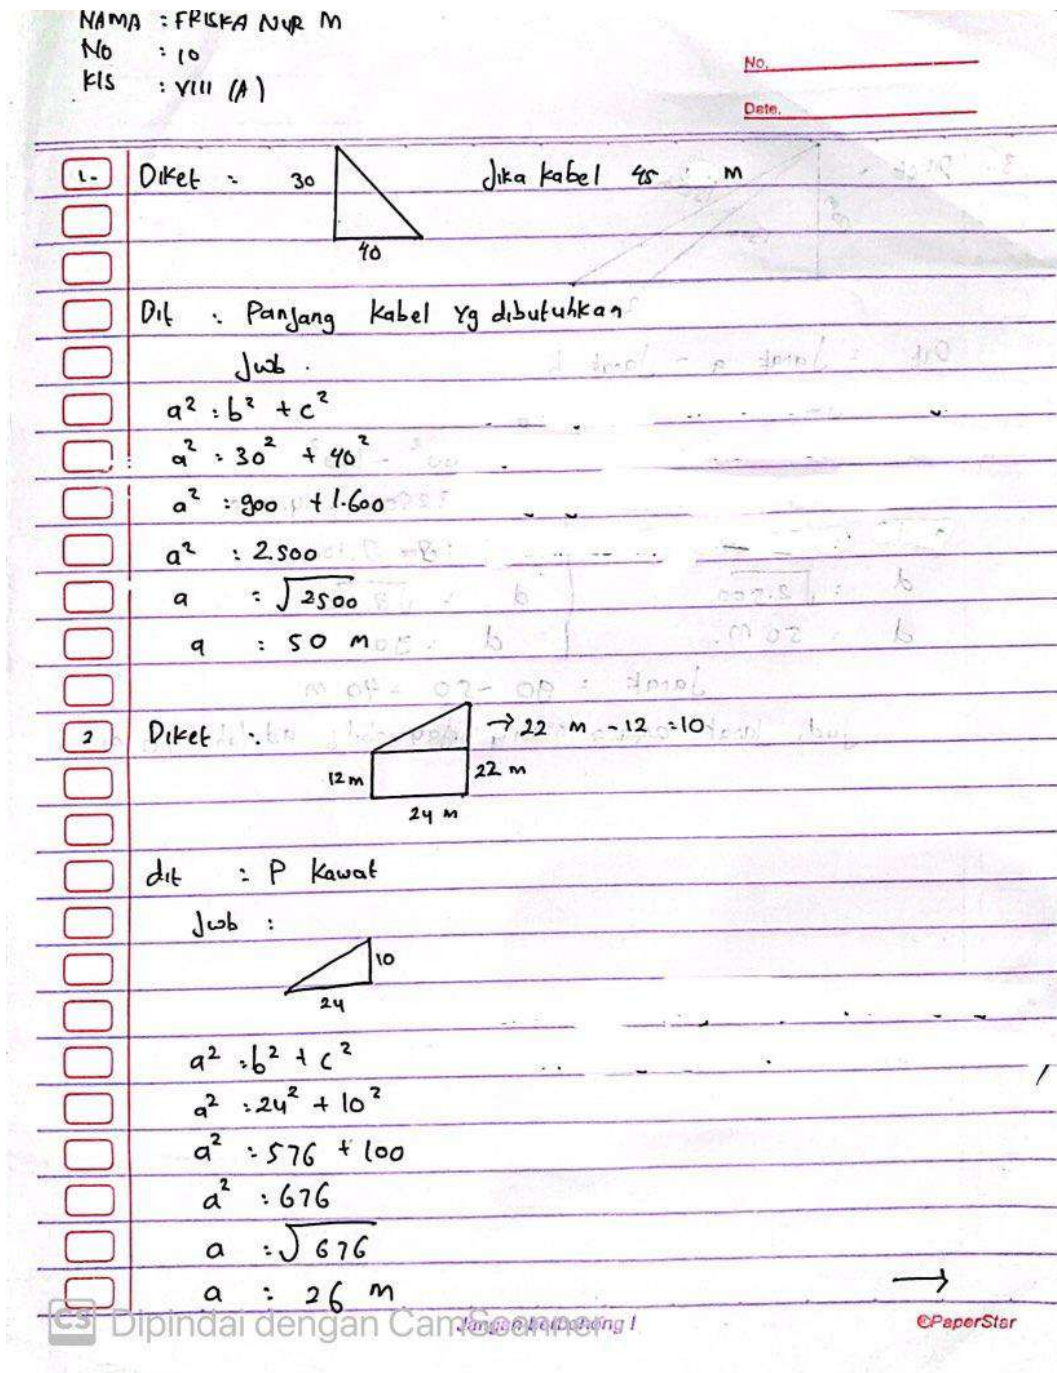 NAMA : FRISKA NUR M
No : 10
Kls : VIII (A)
No.
Date.
1. Diket : 30 Jika kabel 45 m
40
Dit : Panjang kabel yg dibutuhkan
Jwb .
a² : b² + c²
a² : 30² + 40²
a² : 900 + 1.600
a² : 2.500
a : √2500
a : 50 m
2 Diket : → 22 m - 12 : 10
12 m 22 m
24 m
dit : P Kawat
Jwb :
10
24
a² : b² + c²
a² : 24² + 10²
a² : 576 + 100
a² : 676
a : √676
a : 26 m
→
CS Dipindai dengan CamScanner
©PaperStar